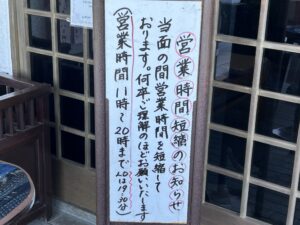 営業時間短縮のお知らせ
当面の間営業時間を短縮して
おります。何卒ご理解のほどお願いいたします
(営業時間 11時～20時まで LOは19:30分)